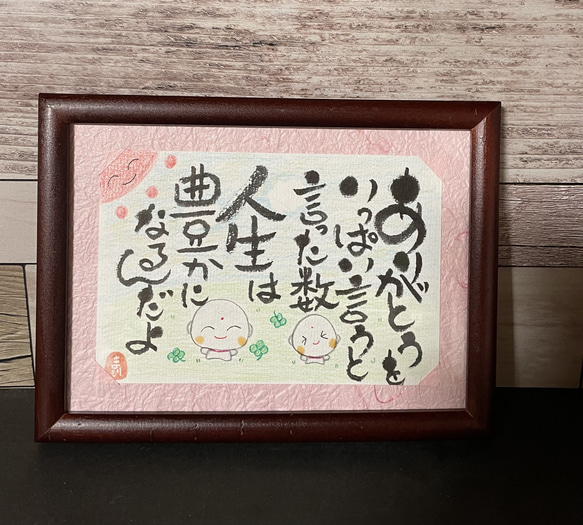 ありがとうを
いっぱい言うと
言った数
人生は
豊かに
なるんだよ